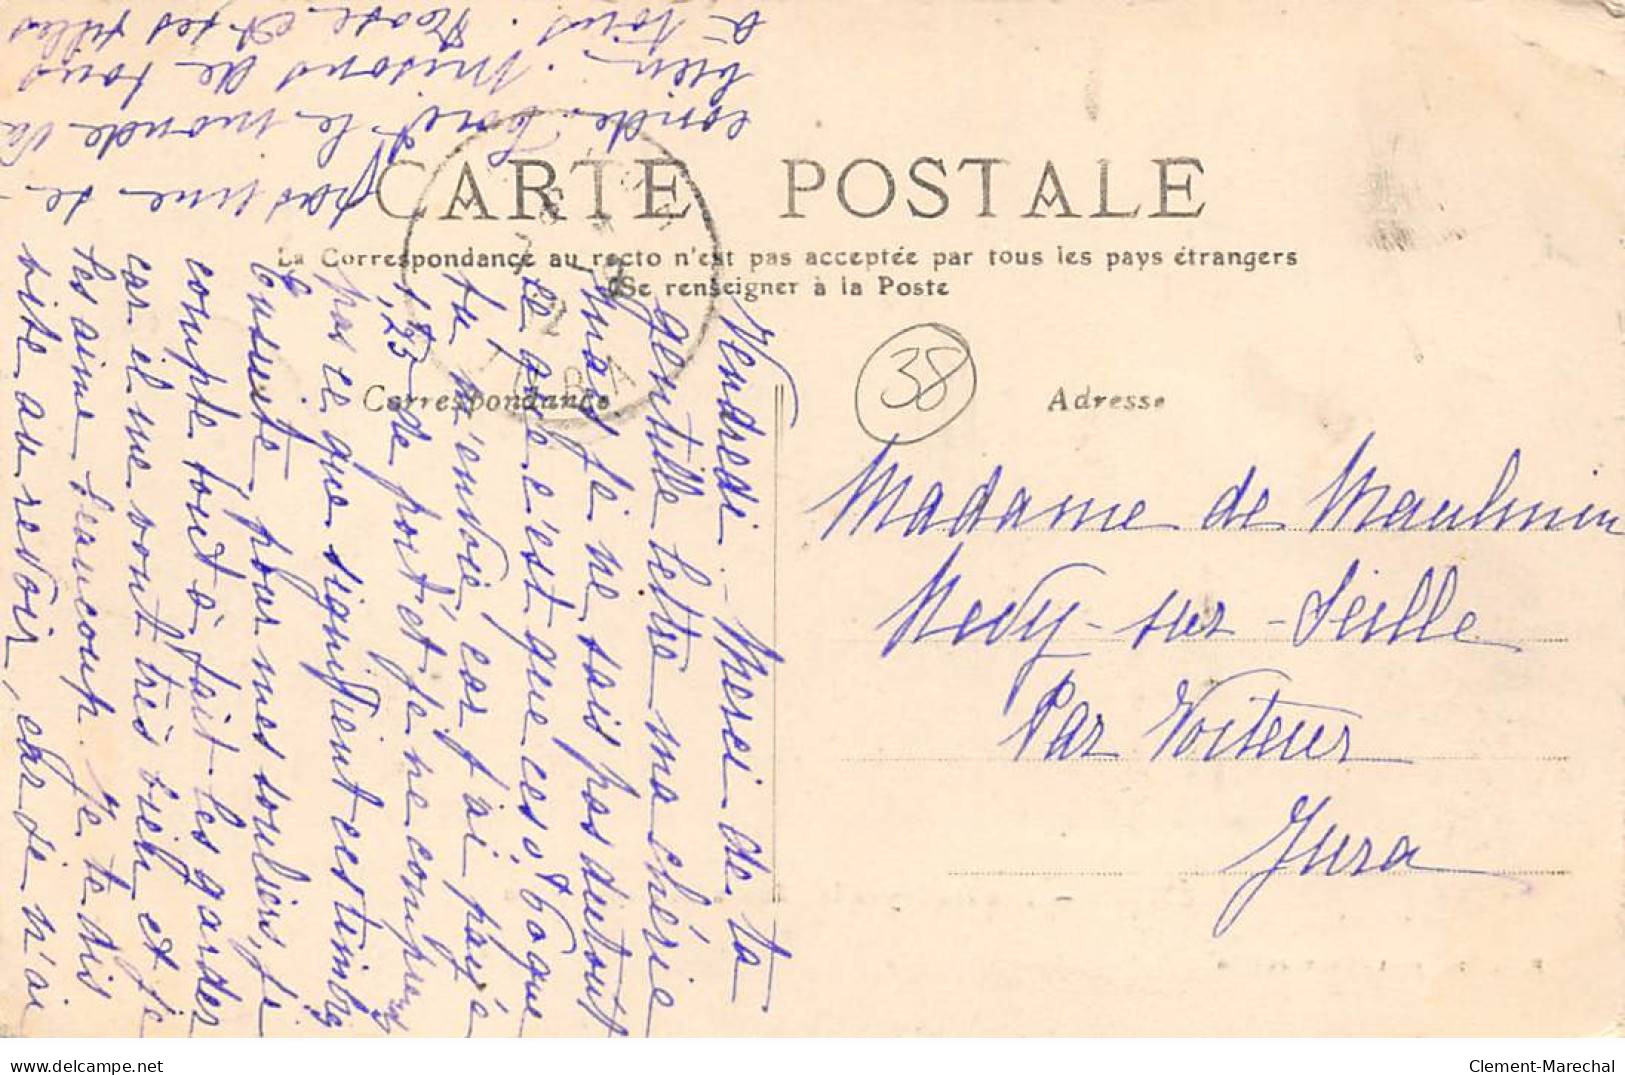 CARTE POSTALE
La Correspondance au recto n'est pas acceptée par tous les pays étrangers
(Se renseigner à la Poste
Correspondance
Adresse
38
Madame de Maulmin
Nevy-sur-Seille
Par Voiteur
Jura
Vendredi - Merci de ta
gentille lettre ma chérie
mais je ne sais pas du tout
ce que c'est que ces 0f60 que
tu m'envoie, car j'ai payé
1,25 de port et je ne comprends
pas ce que signifient ces timbres
Ensuite, pour mes souliers, je
compte tout à fait les garder
car il me vont très bien et je
les aime beaucoup. Je te dis
vite au revoir, car je n'ai
pas une se-
conde. Tout le monde va
bien. Misons de tous
à tous. Rose et ses filles
www.delcampe.net
Clement-Marechal